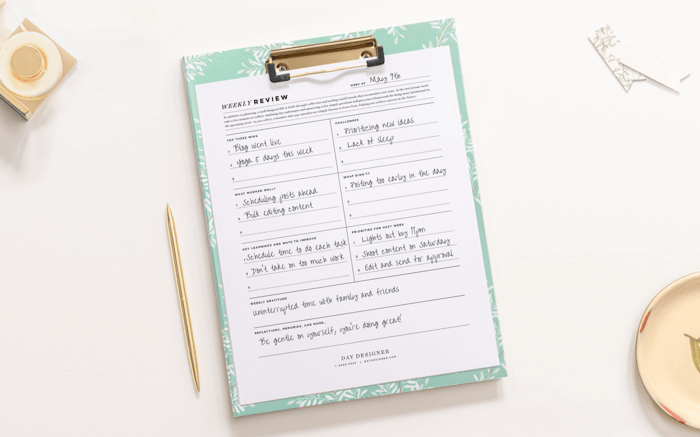 WEEK OF May 9th
WEEKLY REVIEW
TOP THREE WINS
Blog went live
Yoga 5 days this week
CHALLENGES
Prioritizing new ideas
Lack of sleep
WHAT WORKED WELL?
Scheduling posts ahead
Bulk editing content
WHAT DIDN'T?
Posting too early in the day
KEY LEARNINGS AND WAYS TO IMPROVE
Schedule time to do each task
Don't take on too much work
PRIORITIES FOR NEXT WEEK
Lights out by 11pm
Shoot content on Saturday
Edit and send for approval
WEEKLY GRATITUDE
Uninterrupted time with family and friends
REFLECTIONS, MEMORIES, AND MORE...
Be gentle on yourself, you're doing great!
DAY DESIGNER
DAYDESIGNER.COM